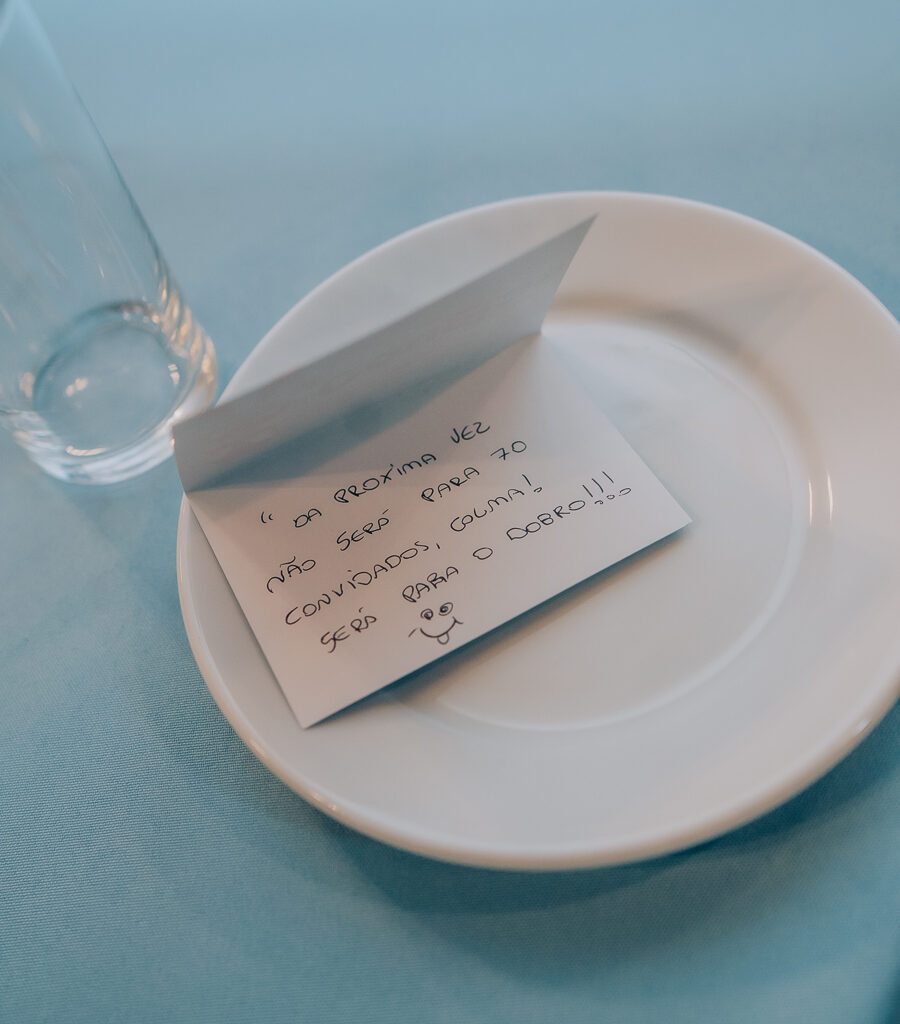 “ DA PRÓXIMA VEZ
NÃO SERÁ PARA 70
CONVIDADOS, COLMA!
SERÁ PARA O DOBRO!!!